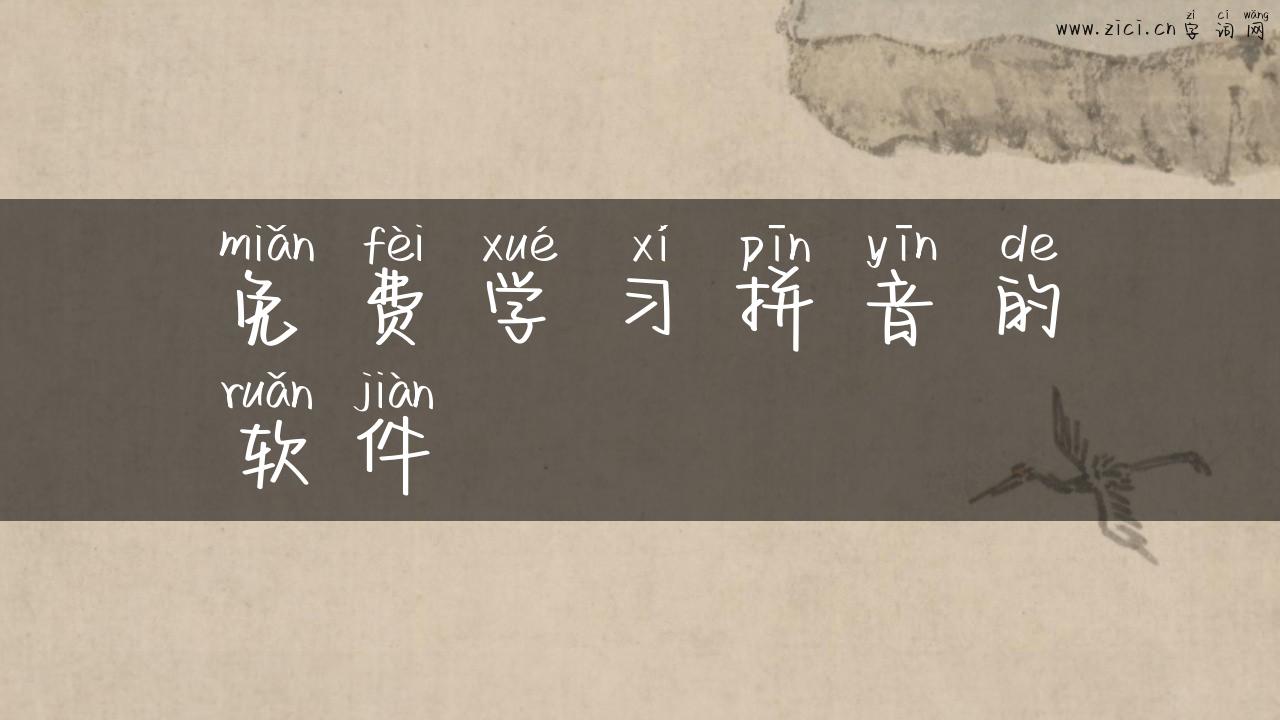 zì cí wǎng
www.zici.cn 字词网
miǎn fèi xué xí pīn yīn de
免费学习拼音的
ruǎn jiàn
软件